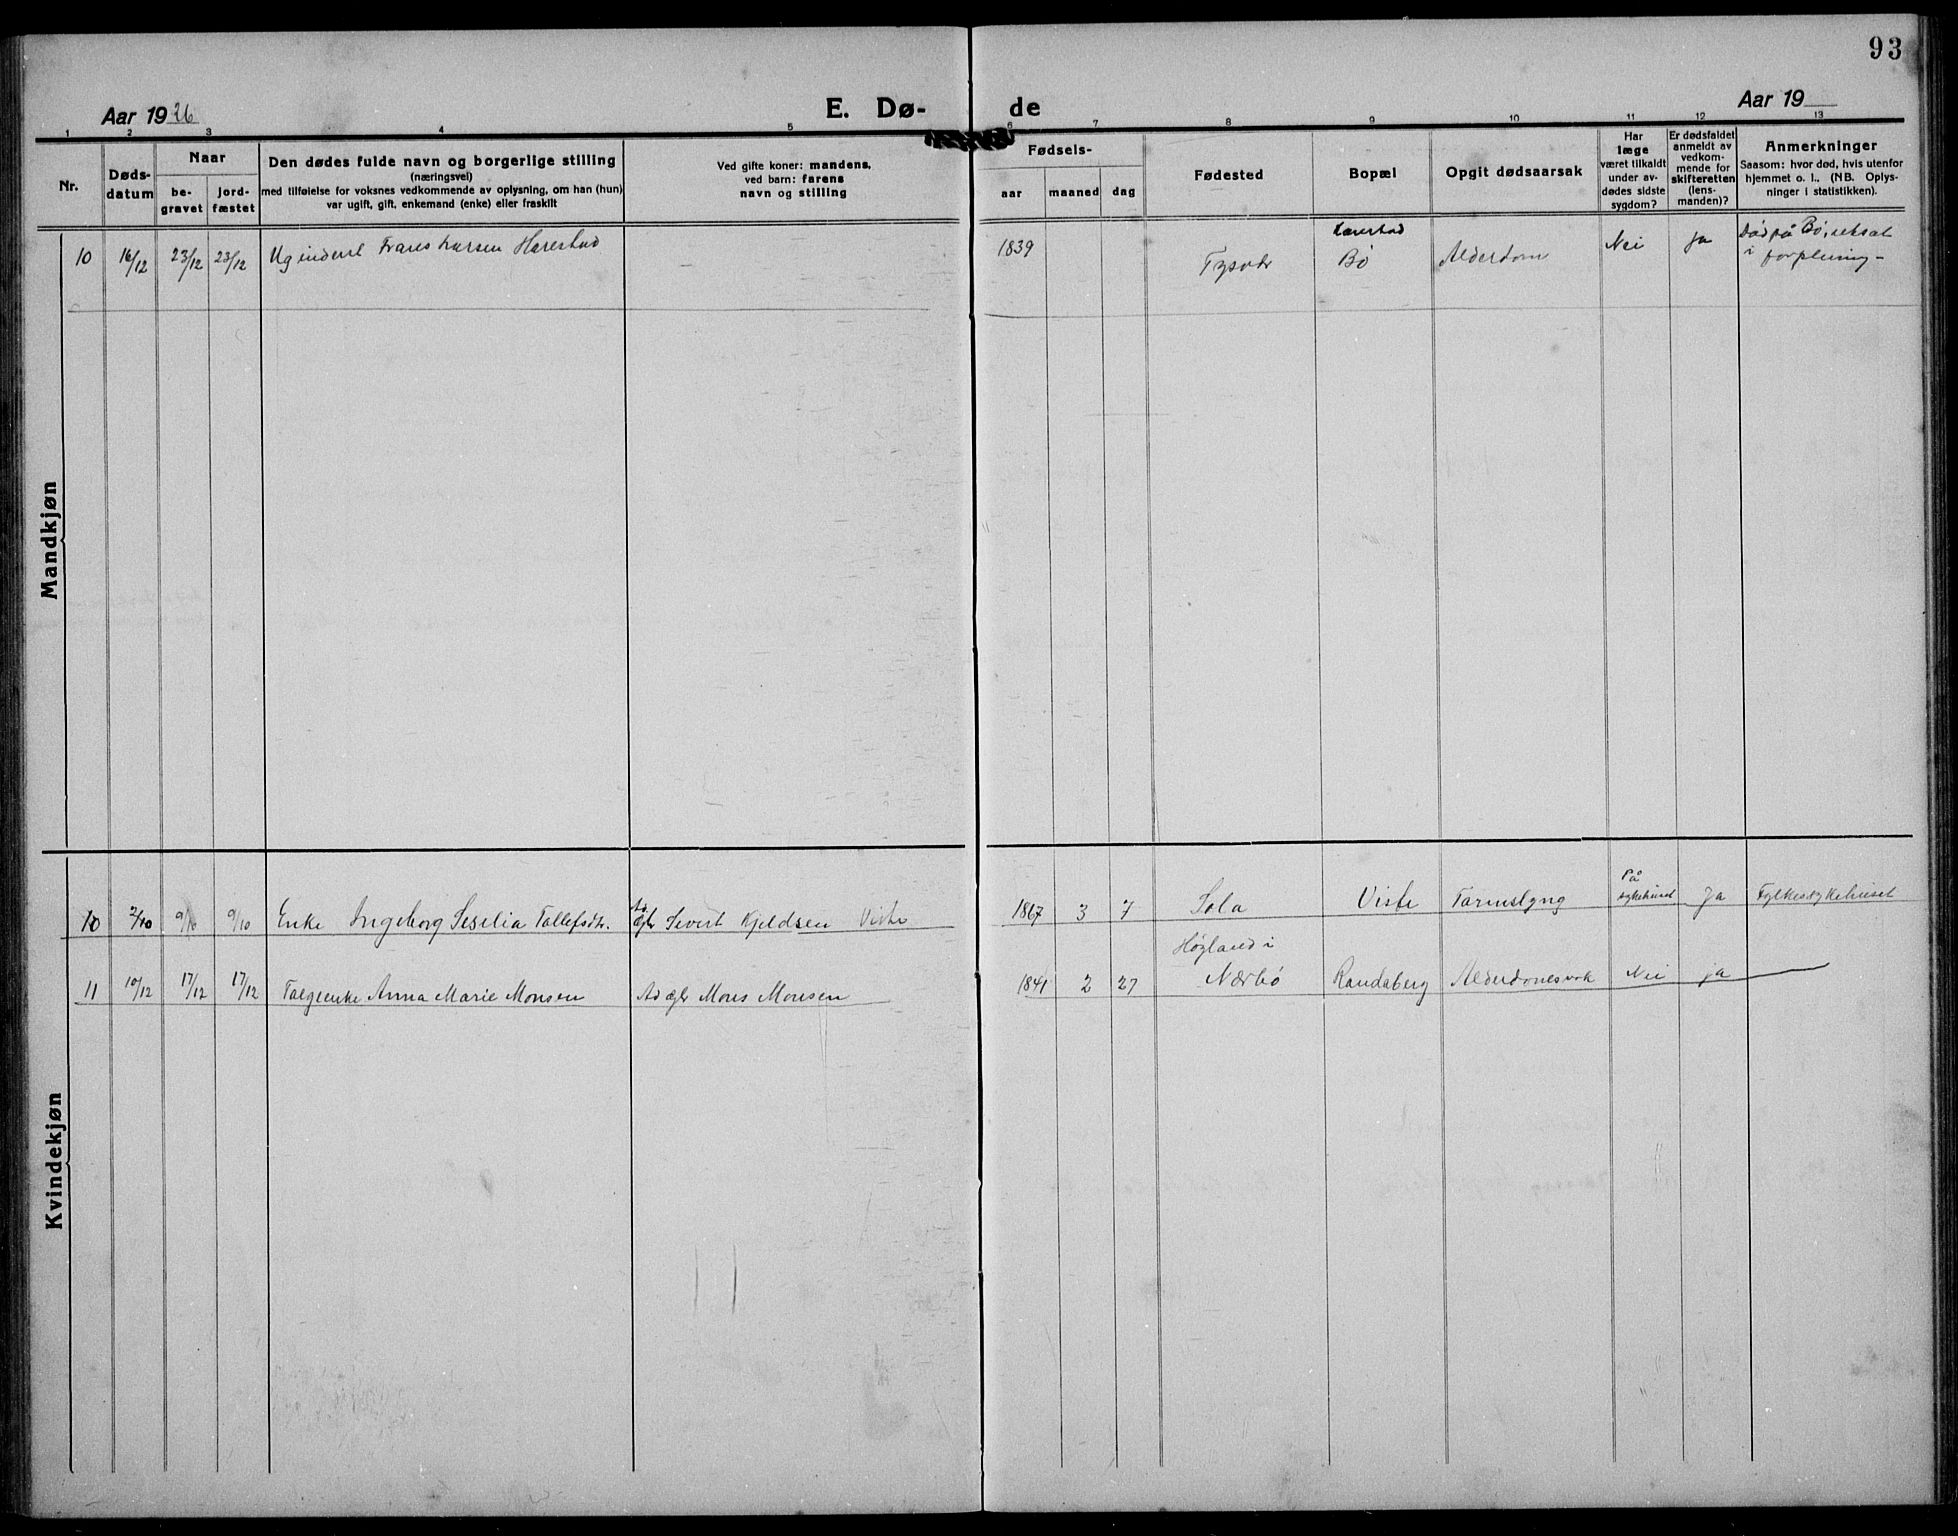 93
Aar 1926
E. Dø-
de
Aar 19
1 2 3 4 5 6 7 8 9 10 11 12 13
Nr.
Døds-
datum
Naar
be-
gravet
jord-
fæstet
Den dødes fulde navn og borgerlige stilling
(næringsvei)
med tilføielse for voksnes vedkommende av oplysning, om han (hun)
var ugift, gift, enkemand (enke) eller fraskilt
Ved gifte koner: mandens,
ved barn: farens
navn og stilling
Fødsels-
aar
maaned
dag
Fødested
Bopæl
Opgit dødsaarsak
Har
læge
været tilkaldt
under av-
dødes sidste
sygdom?
Er dødsfaldet
anmeldt av
vedkom-
mende for
skifteretten
(lens-
manden)?
Anmerkninger
Saasom: hvor død, hvis utenfor
hjemmet o. l., (NB. Oplys-
ninger i statistikken).
Mandkjøn
10 16/12 23/12 23/12 Ug inderst Larsen Harestad 1839 Tysvær Harestad
Bø Alderdom Nei Ja Død på Bø, utsat
i forpleining -
Kvindekjøn
10 2/10 9/10 9/10 Enke Ingeborg Sesilia Tollefsdtr. Sivert Kjeldsen Viste 1867 3 7 Sola Viste Tarmslyng På
sykehuset Ja Fylkessykehuset
11 10/12 17/12 17/12 Anna Marie Monsen Mons Monsen 1841 2 27 Høyland i
Nærbø Randaberg Alderdomssvak Nei ja